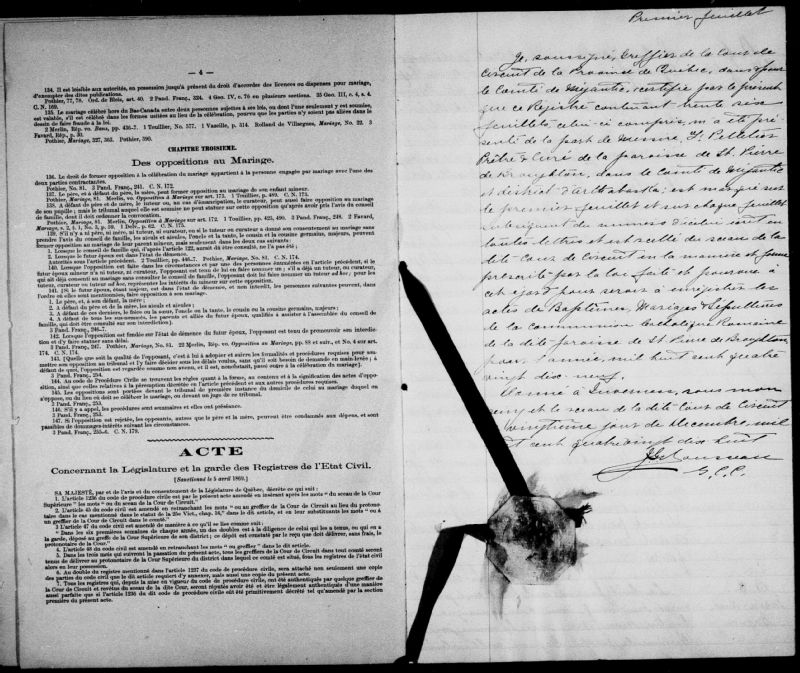 — 4 —
134. Il est loisible aux autorités, en possession jusqu'à présent du droit d'accorder des licences ou dispenses pour mariage,
d'exempter des dites publications.
Pothier, 77, 78. Ord. de Blois, art. 40. 2 Pand. Franç., 324. 4 Geo. IV, c. 76 en plusieurs sections. 35 Geo. III, c. 4, s. 4.
C. N. 169.
135. Le mariage célébré hors du Bas-Canada entre deux personnes sujettes à ses lois, ou dont l'une seulement y est soumise,
est valable, s'il est célébré dans les formes usitées au lieu de la célébration, pourvu que les parties n'y soient pas allées dans le
dessein de faire fraude à la loi.
2 Merlin, Rép. vo. Bans, pp. 436-7. 1 Toullier, No. 577. 1 Vazeille, p. 314. Rolland de Villargues, Mariage, No. 22. 3
Favard, Rép., p. 30.
Pothier, Mariage, 327, 363. Pothier, 390.
CHAPITRE TROISIÈME.
Des oppositions au Mariage.
136. Le droit de former opposition à la célébration du mariage appartient à la personne engagée par mariage avec l'une des
deux parties contractantes.
Pothier, No. 81. 3 Pand. Franç., 241. C. N. 172.
137. Le père, et à défaut du père, la mère, peut former opposition au mariage de son enfant mineur.
Pothier, Mariage, 81. Merlin, vo. Opposition à Mariage sur art. 173. 1 Toullier, p. 489. C. N. 173.
138. A défaut de père et de mère, le tuteur ou, au cas d'émancipation, le curateur, peut aussi faire opposition au mariage
de son pupille; mais le tribunal auquel elle est soumise ne peut statuer sur cette opposition qu'après avoir pris l'avis du conseil
de famille, dont il doit ordonner la convocation.
Pothier, Mariage, 81. Merlin, Opposition à Mariage sur art. 172. 1 Toullier, pp. 423, 490. 3 Pand. Franç., 248. 2 Favard,
139. S'il n'y a ni père, ni mère, ni tuteur, ni curateur, ou si le tuteur ou curateur a donné son consentement au mariage sans
prendre l'avis du conseil de famille, les aïeuls et aïeules, l'oncle et la tante, le cousin et la cousine germains, majeurs, peuvent
former opposition au mariage de leur parent mineur, mais seulement dans les deux cas suivants:
1. Lorsque le conseil de famille qui, d'après l'article 122, aurait dû être consulté, ne l'a pas été;
2. Lorsque le futur époux est dans l'état de démence.
Autorités sous l'article précédent. 2 Toullier, pp. 446-7. Pothier, Mariage, No. 81. C. N. 174.
140. Lorsque l'opposition est faite dans les circonstances et par une des personnes énumérées en l'article précédent, si le
futur époux mineur n'a ni tuteur, ni curateur, l'opposant est tenu de lui en faire nommer un; s'il a déjà un tuteur ou curateur,
qui ait déjà consenti au mariage sans consulter le conseil de famille, l'opposant doit lui faire nommer un tuteur ad hoc; pour les
tuteur, curateur ou tuteur ad hoc, représenter les intérêts du mineur sur cette opposition.
141. [Si le futur époux, étant majeur, est dans l'état de démence, et non interdit, les personnes suivantes peuvent, dans
l'ordre où elles sont mentionnées, faire opposition à son mariage.
1. Le père, et à son défaut, la mère;
2. A défaut du père et de la mère, les aïeuls et aïeules;
3. A défaut de ces derniers, le frère ou la sœur, l'oncle ou la tante, le cousin ou la cousine germains, majeurs;
4. A défaut de tous les sus-nommés, les parents et alliés du futur époux, qualifiés à assister à l'assemblée du conseil de
famille, qui doit être consulté sur son interdiction].
3 Pand. Franç., 246-7.
142. Lorsque l'opposition est fondée sur l'état de démence du futur époux, l'opposant est tenu de promouvoir son interdic-
tion et d'y faire statuer sans délai.
3 Pand. Franç., 247. Pothier, Mariage, No. 81. 22 Merlin, Rép. vo. Opposition au Mariage, pp. 88 et suiv., et No. 4 sur art.
174. C. N. 174.
143. [Quelle que soit la qualité de l'opposant, c'est à lui à adopter et suivre les formalités et procédures requises pour sou-
mettre son opposition au tribunal et l'y faire décider sous les délais voulus, sans qu'il soit besoin de demande en main-levée; à
défaut de quoi, l'opposition est regardée comme non avenue, et il est, nonobstant, passé outre à la célébration du mariage].
3 Pand. Franç., 254.
144. Au code de Procédure Civile se trouvent les règles quant à la forme, au contenu et à la signification des actes d'oppo-
sition, ainsi que celles relatives à la péremption décrétée en l'article précédent et aux autres procédures requises.
145. Les oppositions sont portées devant le tribunal de première instance du domicile de celui au mariage duquel on
s'oppose, ou du lieu où doit se célébrer le mariage, ou devant un juge de ce tribunal.
3 Pand. Franç., 253.
146. S'il y a appel, les procédures sont sommaires et elles ont préséance.
3 Pand. Franç., 253.
147. Si l'opposition est rejetée, les opposants, autres que le père et la mère, peuvent être condamnés aux dépens, et sont
passibles de dommages-intérêts suivant les circonstances.
3 Pand. Franç., 255-6. C. N. 179.
ACTE
Concernant la Législature et la garde des Registres de l'Etat Civil.
[Sanctionné le 5 avril 1869.]
SA MAJESTÉ, par et de l'avis et du consentement de la Législature de Québec, décrète ce qui suit:
1. L'article 1236 du code de procédure civile est par le présent acte amendé en insérant après les mots "du sceau de la Cour
Supérieure" les mots "ou du sceau de la Cour de Circuit."
2. L'article 45 du code civil est amendé en retranchant les mots "ou au greffier de la Cour de Circuit au lieu du protono-
taire dans le cas mentionné dans le statut de la 25e Vict., chap. 16," dans le dit article, et en leur substituant les mots "ou à
un greffier de la Cour de Circuit dans le comté."
3. L'article 47 du code civil est amendé de manière à ce qu'il se lise comme suit:
"Dans les six premières semaines de chaque année, un des doubles est à la diligence de celui qui les a tenus, ou qui en a
la garde, déposé au greffe de la Cour Supérieure de son district; ce dépôt est constaté par le reçu que doit délivrer, sans frais, le
protonotaire de la Cour."
4. L'article 48 du code civil est amendé en retranchant les mots "ou greffier" dans le dit article.
5. Dans les trois mois qui suivront la passation du présent acte, tous les greffiers de la Cour de Circuit dans tout comté seront
tenus de délivrer au protonotaire de la Cour Supérieure du district dans lequel ce comté est situé, tous les registres de l'état civil
alors en leur possession.
6. Au double du registre mentionné dans l'article 1237 du code de procédure civile, sera attaché non seulement une copie
des parties du code civil que le dit article requiert d'y annexer, mais aussi une copie du présent acte.
7. Tous les registres qui, depuis la mise en vigueur du code de procédure civile, ont été authentiqués par quelque greffier de
la Cour de Circuit et revêtus du sceau de la dite Cour, seront réputés avoir été et être légalement authentiqués d'une manière
aussi parfaite que si l'article 1236 du dit code de procédure civile eût été primitivement décrété tel qu'amendé par la section
première du présent acte.
Premier feuillet
Je, soussigné, Greffier de la Cour de
Circuit de la Province de Québec, dans & pour
le Comté de Mégantic, certifie par le présent
que ce Registre contenant trente six
feuillets, celui-ci compris, m'a été pré-
senté de la part de Messire, Pelletier
Prêtre & Curé de la paroisse de St. Pierre
de Broughton, dans le Comté de Mégantic
et district d'Arthabaska; est marqué sur
le premier feuillet et sur chaque feuillet
subséquent du numéro d'icelui écrit en
toutes lettres et est scellé du sceau de la
dite Cour de Circuit en la manière et forme
prescrite par la loi faite et pourvue à
cet égard pour servir à enregistrer les
actes de Baptêmes, Mariages & Sépultures
de la communion Catholique Romaine
de la dite paroisse de St Pierre de Broughton
pour l'année, mil huit cent quatre
vingt dix-neuf.
Donné à Inverness, sous mon
seing et le sceau de la dite Cour de Circuit
vingtième jour de Décembre, mil
huit cent quatrevingt dix huit
Rousseau
G. C. C.